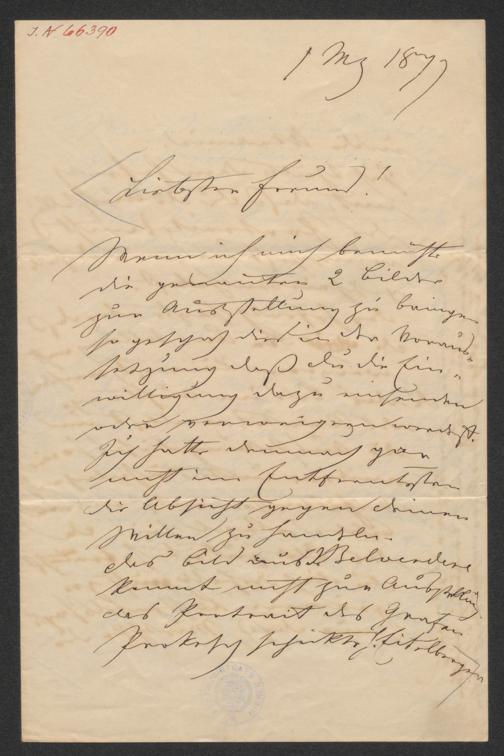 J.N. 66390
1 Mz 1877
Liebster Freund!
Wenn ich mich bemühte
die genannten 2 Bilder
zur Ausstellung zu bringen
so geschah dies in der Voraus-
setzung daß du die Ein-
willigung dazu einsenden
oder verweigern werdest.
Ich hatte demnach gar
nicht im Entferntesten
die Absicht gegen deinen
Willen zu handeln.
das Bild aus Belvedere
kommt nicht zur Ausstellung
das Portrait des Grafen
Prokesch schickte Eitelberger